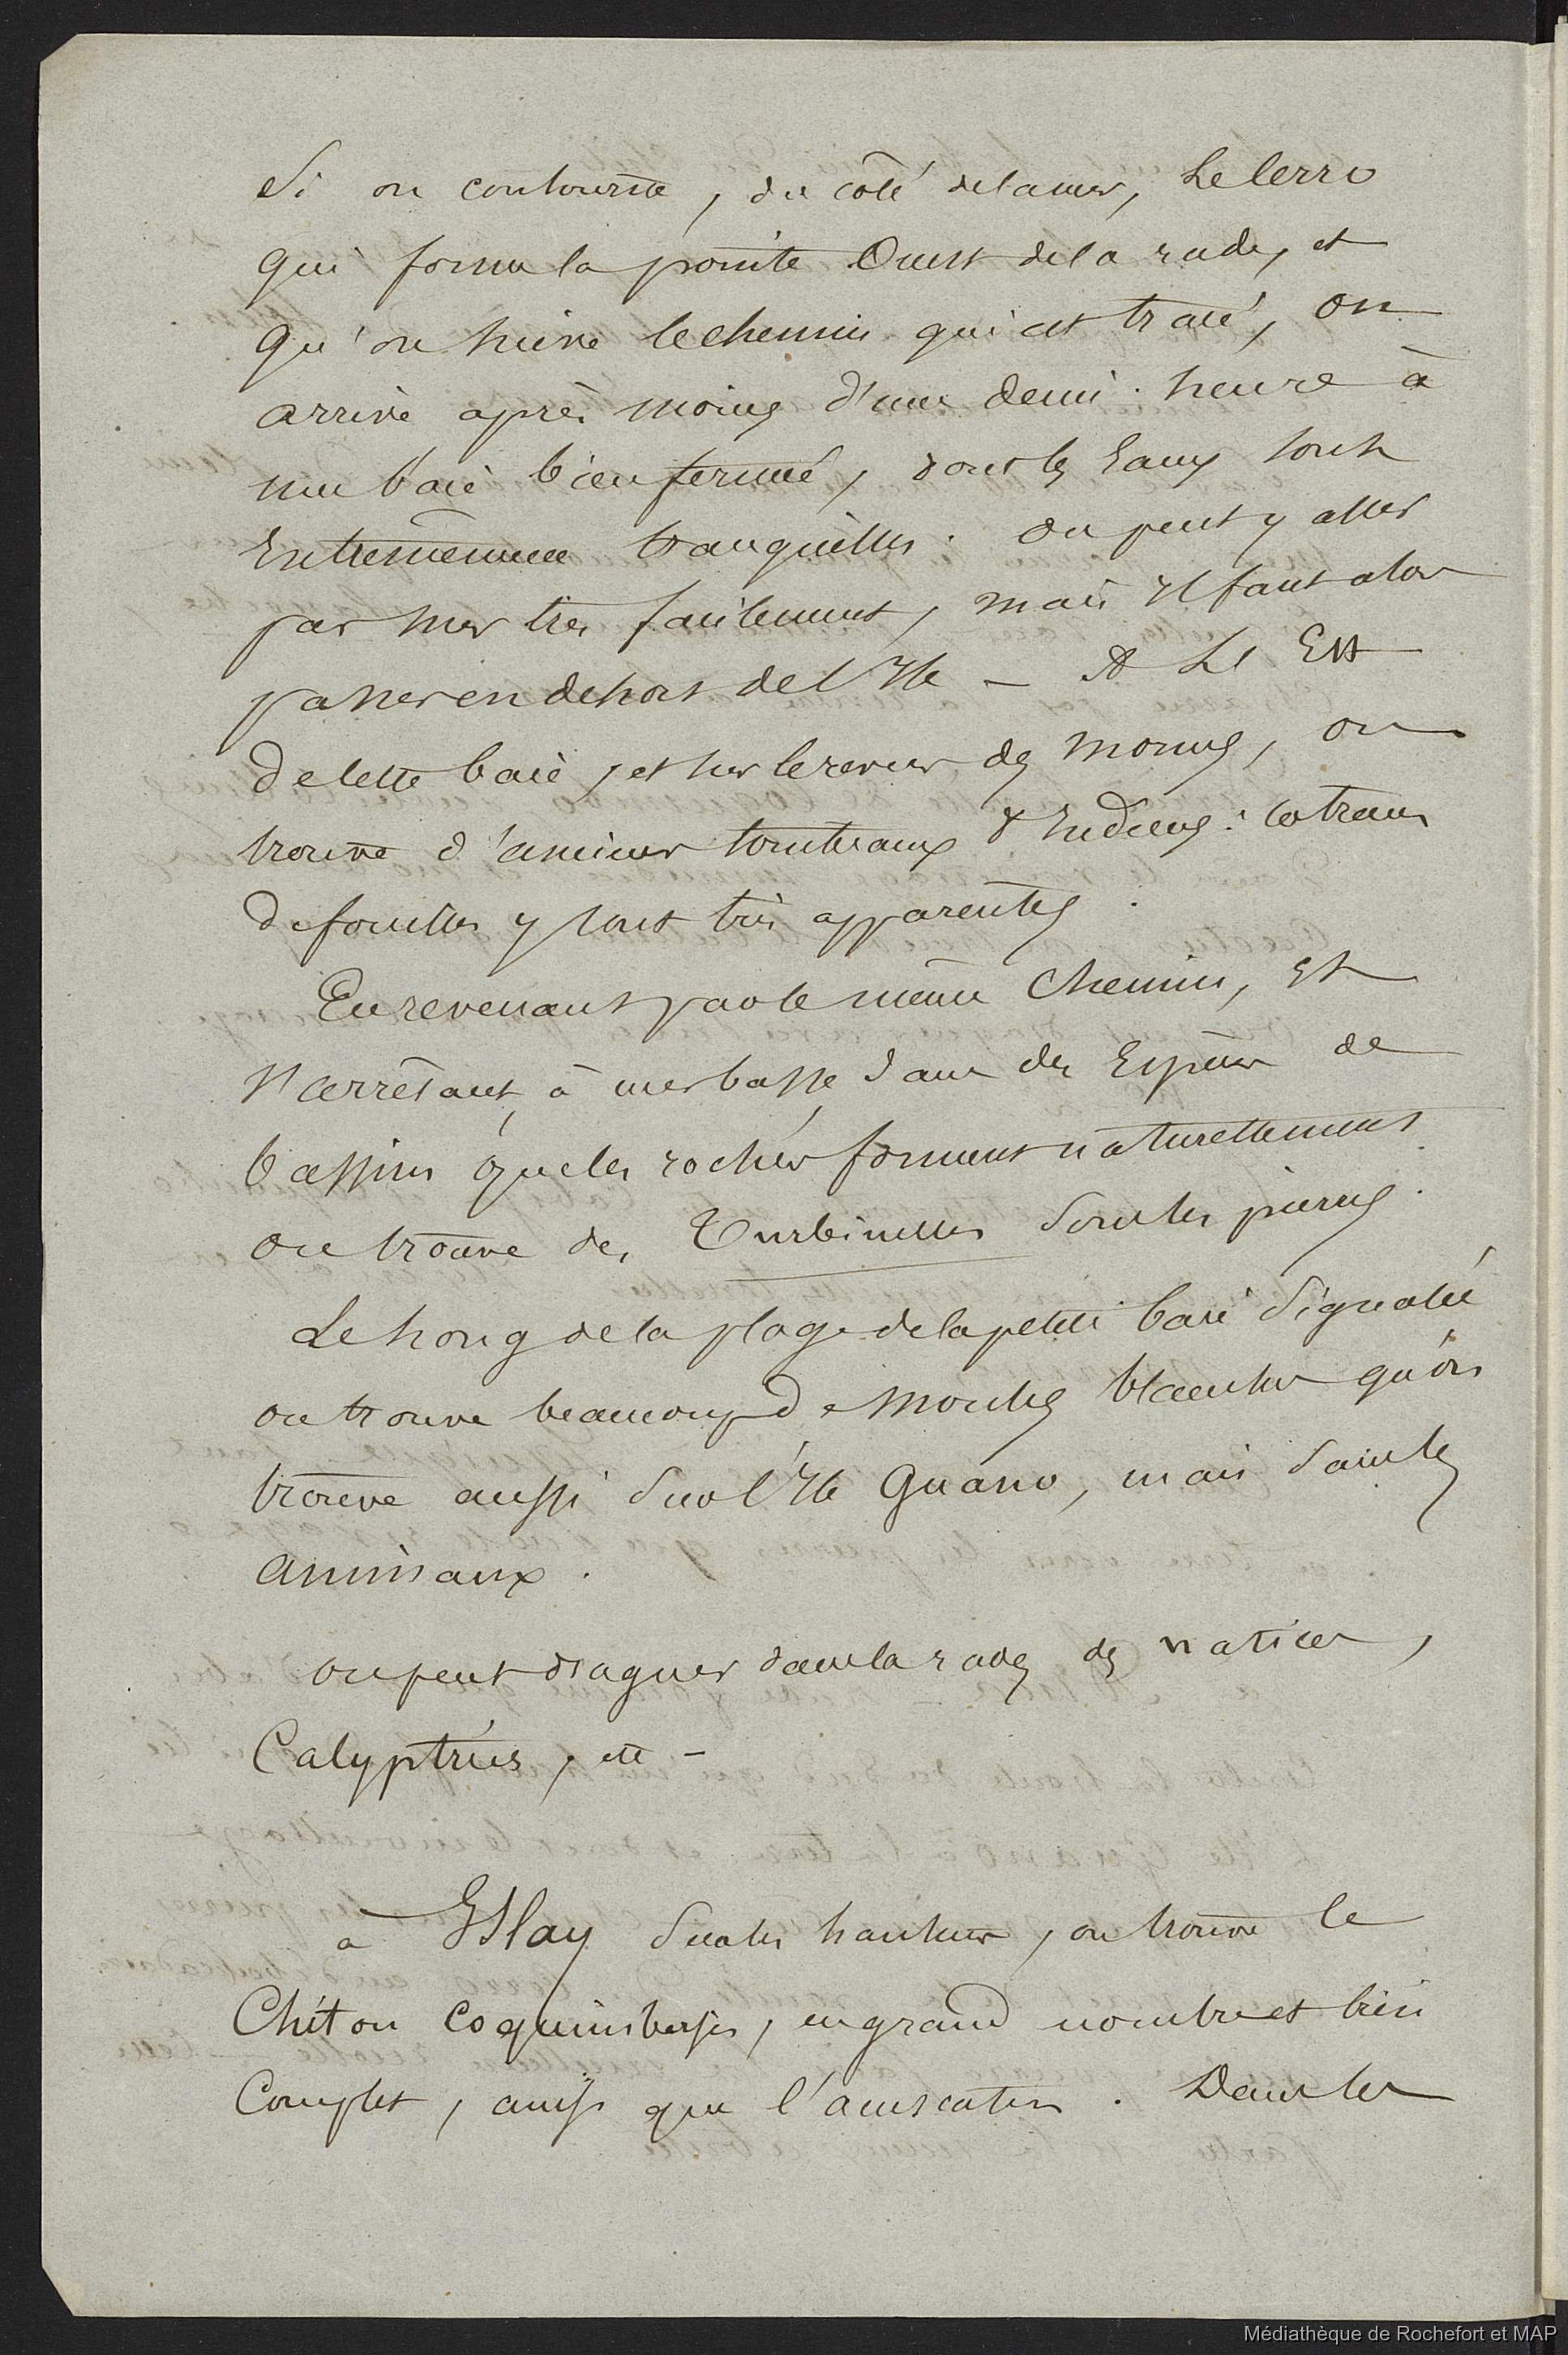 Si on contourne, du côté de la mer, Le Cerro
qui forme la pointe Ouest de la rade, et
qu'on suive le chemin qui est tracé, on
arrive après moins d'une demi-heure à
une baie bien fermée, dont les Eaux sont
Extremement tranquilles. On peut y aller
par mer très facilement, mais Il faut alors
passer en dehors de l'Ile — A L'Est
de cette baie, et sur le revers des mornes, on
trouve d'anciens tombeaux d'Indiens: les traces
de fouilles y sont très apparentes.
En revenant par le même Chemin, Et
s'arrêtant, à mer basse dans des Espèces de
bassins que les rochers forment naturellement
on trouve des Turbinelles Sous les pierres.
Le long de la plage de la petite baie Signalée
on trouve beaucoup de Moules blanches qu'on
trouve aussi Sur l'Ile Guano, mais Sans les
animaux.
on peut draguer dans la rade des natices,
Calyptrées, etc –
à Islay Sur les hauteurs, on trouve le
Chiton Coquimbensis, en grand nombre et bien
Complet, ainsi que . Dans les
Médiathèque de Rochefort et MAP